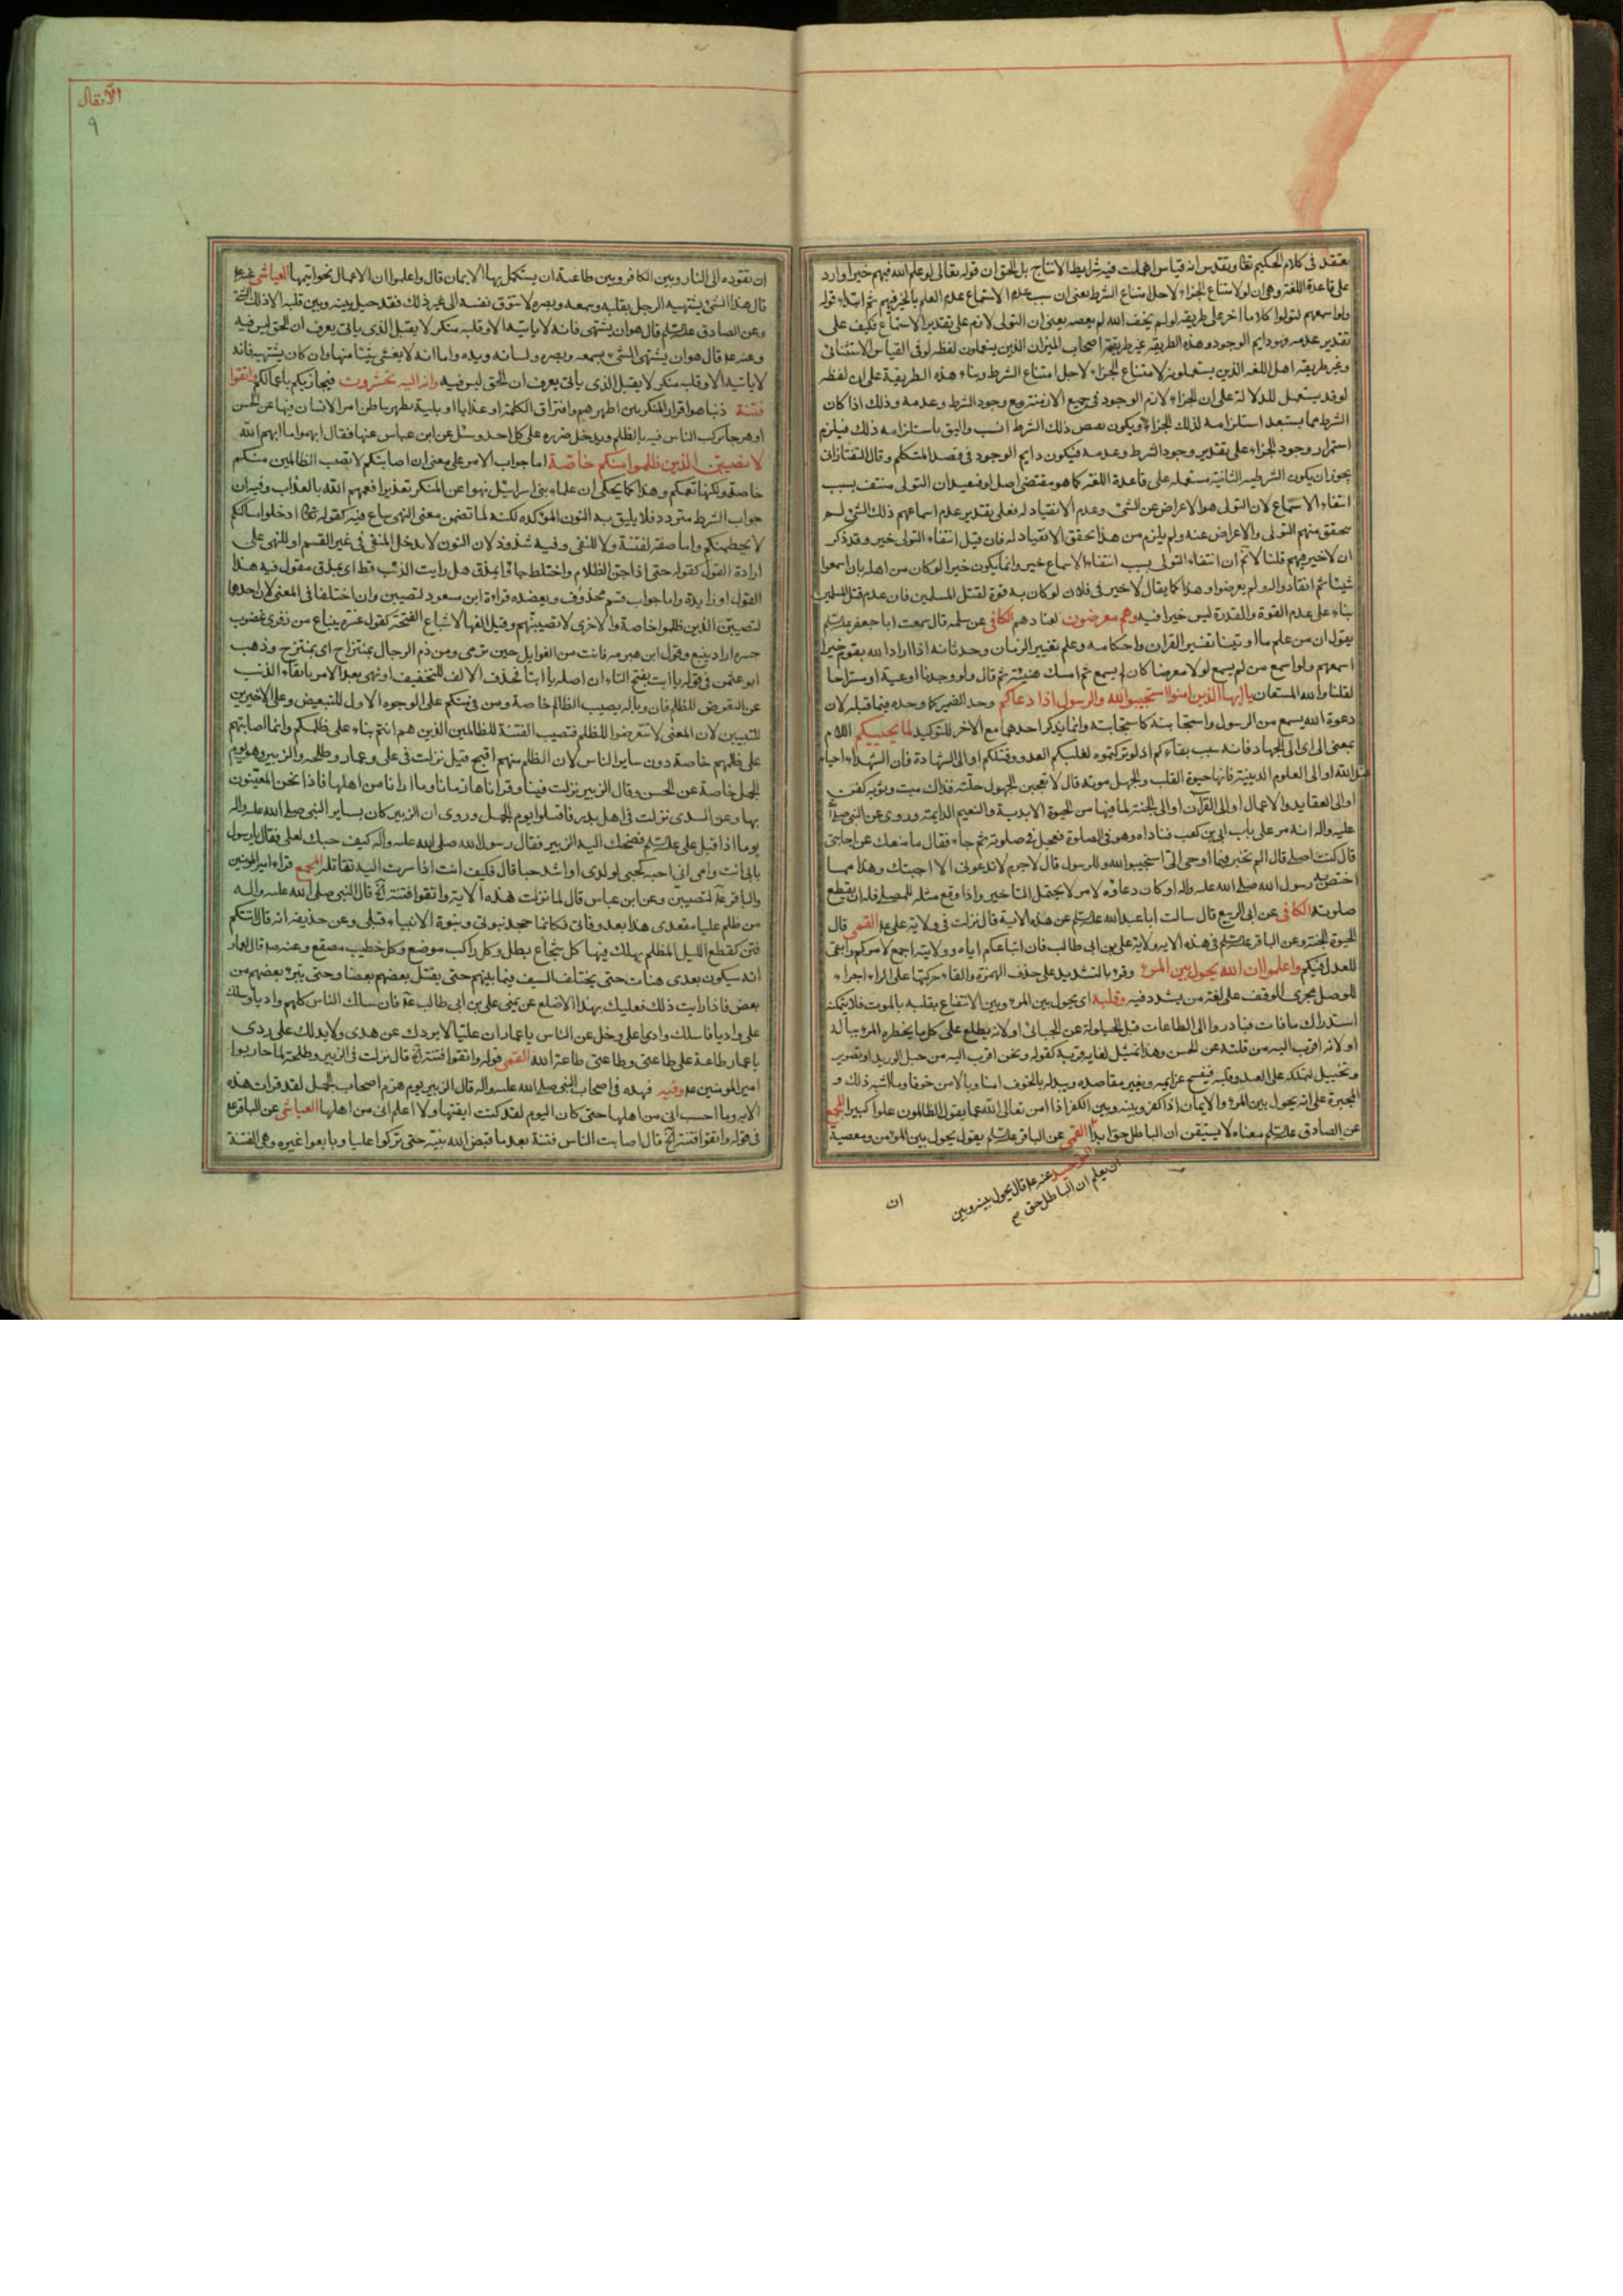 يعتقد فى كلام الحكيم تعا وتقدس انه قياس اهملت فيه شرايط الانتاج بل الحق ان قوله تعالى لو علم الله فيهم خيرا وارد
على قاعدة اللغة وهى ان لو لامتناع الجزاء لاجل امتناع الشرط يعنى ان سبب عدم الاسماع عدم العلم بالخير فيهم ثم ابتداء قوله
ولو اسمعهم لتولوا كلاما اخر على طريقة لو لم يخف الله لم يعصه يعنى ان التولى لازم على تقدير الاسماع فكيف على
تقدير عدمه فهو دايم الوجود وهذه الطريقة غير طريقة اصحاب الميزان الذين يستعملون لفظ لو فى القياس الاستثنائى
وغير طريقة اهل اللغة الذين يستعملونه لامتناع الجزاء لاجل امتناع الشرط وبناء هذه الطريقة على ان لفظ
لو قد يستعمل للدلالة على ان الجزاء لازم الوجود فى جميع الازمنة مع وجود الشرط وعدمه وذلك اذا كان
الشرط مما يستبعد استلزامه لذلك الجزاء ويكون نقيض ذلك الشرط انسب واليق باستلزامه ذلك فيلزم
استمرار وجود الجزاء على تقدير وجود الشرط وعدمه فيكون دايم الوجود فى قصد المتكلم وقال التفتازانى
يجوز ان يكون الشرطية الثانية مستعملة على قاعدة اللغة كما هو مقتضى اصل لو فيفيد ان التولى منتف بسبب
انتفاء الاسماع لان التولى هو الاعراض عن الشئ وعدم الانقياد له فعلى تقدير عدم اسماعهم ذلك الشئ لم
يتحقق منهم التولى والاعراض عنه ولم يلزم من هذا تحقق الانقياد له فان قيل انتفاء التولى خير وقد ذكر
ان لا خير فيهم قلنا لا نم ان انتفاء التولى بسبب انتفاء الاسماع خير وانما يكون خيرا لو كان من اهله بان اسمعوا
شيئا ثم انقادوا له ولم يعرضوا وهذا كما يقال لا خير فى فلان لو كان به قوة لقتل المسلمين فان عدم قتل المسلمين
بناء على عدم القوة والقدرة ليس خيرا فيه وهم معرضون لعنادهم الكافى عن سلمة قال سمعت ابا جعفر عليه السلم
يقول ان من علم ما اوتينا تفسير القران واحكامه وعلم تغيير الزمان وحدثانه اذا اراد الله بقوم خيرا
اسمعهم ولو اسمع من لم يسمع لولا معرضا كان لم يسمع ثم امسك هنيئة ثم قال ولو وجدنا اوعية او مستراحا
لقلنا والله المستعان يا ايها الذين امنوا استجيبوا لله والرسول اذا دعاكم وحد الضمير كما وحده فيما قبله لان
دعوة الله يسمع من الرسول واستجابته كاستجابته وانما يذكر احدهما مع الاخر للتوكيد لما يحييكم اللام
بمعنى الى اى الى الجهاد فانه سبب بقاءكم اذ لو تركتموه لغلبكم العدو وقتلكم او الى الشهادة فان الشهداء احياء
عند الله او الى العلوم الدينية فانها حيوة القلب والجهل موته قال لا تعجبن الجهول حلته فذاك ميت وثوبه كفن
او الى العقايد والاعمال او الى القرآن او الى الجنة لما فيها من الحيوة الابدية والنعيم الدايمة وروى عن النبى صلى الله
عليه واله انه مر على باب ابى بن كعب فناداه وهو فى الصلوة فعجل فى صلوته ثم جاء فقال ما منعك عن اجابتى
قال كنت اصلى قال الم تخبر فيما اوحى الى استجيبوا لله وللرسول قال لا جرم لا تدعونى الا اجبتك وهذا مما
اختص به رسول الله صلى الله عليه واله او كان دعاؤه لامر لا يحتمل التاخير واذا وقع مثله للمصلى فله ان يقطع
صلوته الكافى عن ابى الربيع قال سالت ابا عبد الله عليه السلم عن هذه الاية قال نزلت فى ولاية على ع القمى قال
الحيوة الجنة وعن الباقر عليه السلم فى هذه الاية ولاية على بن ابى طالب فان اتباعكم اياه وولايته اجمع لامركم وابقى
للعدل فيكم واعلموا ان الله يحول بين المرء وقرء بالتشديد على حذف الهمزة والقاء حركتها على الراء اجراء
للوصل مجرى الوقف على لغة من يشدد فيه وقلبه اى يحول بين المرء وبين الانتفاع بقلبه بالموت فلا يتمكنه
استدراك ما فات فبادروا الى الطاعات قبل الحيلولة عن الجبائى او لانه يطلع على كل ما يخطره المرء بباله
او لانه اقرب اليه من قلبه عن الحسن وهذا تمثيل لغاية قربه كقوله ونحن اقرب اليه من حبل الوريد او تصوير
وتخييل لتملكه على العبد وقلبه فيفسخ عزايمه ويغير مقاصده ويبدله بالخوف امنا وبالامن خوفا وما اشبه ذلك و
المجبرة على انه يحول بين المرء والايمان اذا كفر وبينه وبين الكفر اذا امن تعالى الله عما يقول الظالمون علوا كبيرا المجمع
عن الصادق عليه السلم معناه لا يستيقن ان الباطل حق ابدا القمى عن الباقر عليه السلم يقول يحول بين المؤمن ومعصيته
التوحيد عنه ع قال يحول بينه وبين
ان يعلم ان الباطل حق صح
ان
الانفال
٩
ان تقوده الى النار وبين الكافر وبين طاعته ان يستكمل بها الايمان قال واعلموا ان الاعمال بخواتيمها العياشى عنه ع
قال هذا الشئ يشتهيه الرجل بقلبه وسمعه وبصره لا تتوق نفسه الى غير ذلك فقد حيل بينه وبين قلبه الا ذلك الشئ
وعن الصادق عليه السلم قال هو ان يشتهى فانه لا ياتيه الا وقلبه منكر لا يقبل الذى ياتى يعرف ان الحق ليس فيه
وعنه ع قال هو ان يشتهى الشئ بسمعه وبصره ولسانه ويده واما انه لا يغشى شيئا منها وان كان يشتهيه فانه
لا ياتيه الا وقلبه منكر لا يقبل الذى ياتى يعرف ان الحق ليس فيه وانه اليه تحشرون فيجازيكم باعمالكم واتقوا
فتنة ذنبا هو اقرار المنكر بين اظهرهم وافتراق الكلمة او عذابا او بلية تظهر باطن امر الانسان فيها عن الحسن
او هرجا يركب الناس فيه بالظلم ويدخل ضرره على كل احد وسئل عن ابن عباس عنها فقال ابهموا ما ابهم الله
لا تصيبن الذين ظلموا منكم خاصة اما جواب الامر على معنى ان اصابتكم لا تصب الظالمين منكم
خاصة ولكنها تعمكم وهذا كما يحكى ان علماء بنى اسرائيل نهوا عن المنكر تعذيرا فعمهم الله بالعذاب وفيه ان
جواب الشرط متردد فلا يليق به النون المؤكده لكنه لما تضمن معنى النهى ساغ فيه كقوله تعا ادخلوا مساكنكم
لا يحطمنكم واما صفة لفتنة ولا للنفى وفيه شذوذ لان النون لا يدخل المنفى فى غير القسم او للنهى على
ارادة القول كقوله حتى اذا جن الظلام واختلط جاؤا بمذق هل رايت الذئب قط اى بمذق مقول فيه هذا
القول او زايدة واما جواب قسم محذوف ويعضده قراءة ابن مسعود لتصيبن وان اختلفا فى المعنى لان احدها
لتصيبن الذين ظلموا خاصة والاخرى لا تصيبنهم وقيل الفها لاشباع الفتحة كقول عنترة ينباع من ذفرى غضوب
جسرة اراد ينبع وقول ابن هرمة فانت من الغوايل حين ترمى ومن ذم الرجال بمنتزاح اى بمنتزح وذهب
ابو عثمن فى قوله يا ابت بفتح التاء ان اصله يا ابتا فحذف الالف للتخفيف او نهى بعد الامر باتقاء الذنب
عن التعرض للظلم فان وباله يصيب الظالم خاصة ومن فى منكم على الوجوه الاول للتبعيض وعلى الاخيرين
للتبيين لان المعنى لا تتعرضوا للظلم فتصيب الفتنة للظالمين الذين هم انتم بناء على ظلمكم وانما اصابتهم
على ظلمهم خاصة دون سايرا الناس لان الظلم منهم اقبح قيل نزلت فى على وعمار وطلحة والزبير وهو يوم
الجمل خاصة عن الحسن وقال الزبير نزلت فينا وقراناها زمانا وما ارانا من اهلها فاذا نحن المعنيون
بها وعن السدى نزلت فى اهل بدر فاقتتلوا يوم الجمل وروى ان الزبير كان يساير النبى صلى الله عليه واله
يوما اذا قبل على عليه السلم فضحك اليه الزبير فقال رسول الله صلى الله عليه واله كيف حبك لعلى فقال يا رسول
بابى انت وامى انى احبه كحبى لولدى او اشد حبا قال فكيف انت اذا سرت اليه تقاتله المجمع قراءة امير المؤمنين
والباقر ع لتصيبن وعن ابن عباس قال لما نزلت هذه الاية واتقوا فتنة الخ قال النبى صلى الله عليه واله
من ظلم عليا مقعدى هذا بعد وفاتى فكانما جحد نبوتى ونبوة الانبياء قبلى وعن حذيفه انه قال اتتكم
فتن كقطع الليل المظلم يهلك فيها كل شجاع بطل وكل راكب موضع وكل خطيب مصقع وعنه ص قال لعمار
انه سيكون بعدى هنات حتى يختلف السيف فيما بينهم حتى يقتل بعضهم بعضا وحتى يتبرء بعضهم من
بعض فاذا رايت ذلك فعليك بهذا الاضلع عن يمنى على بن ابى طالب ع فان سلك الناس كلهم واديا وسلك
على واديا فاسلك وادى على وخل عن الناس يا عمار ان عليا لا يردك عن هدى ولا يدلك على ردى
يا عمار طاعة على طاعتى وطاعتى طاعة الله القمى قوله واتقوا فتنة الخ قال نزلت فى الزبير وطلحة لما حاربوا
امير المومنين ع وفيه فهذه فى اصحاب النبى صلى الله عليه واله قال الزبير يوم هزم اصحاب الجمل لقد قرات هذه
الاية وما احسب انى من اهلها حتى كان اليوم لقد كنت اتقيها ولا اعلم انى من اهلها العياشى عن الباقر ع
فى قوله واتقوا فتنة الخ قال اصابت الناس فتنة بعد ما قبض الله نبيه حتى تركوا عليا وبايعوا غيره وهى الفتنة